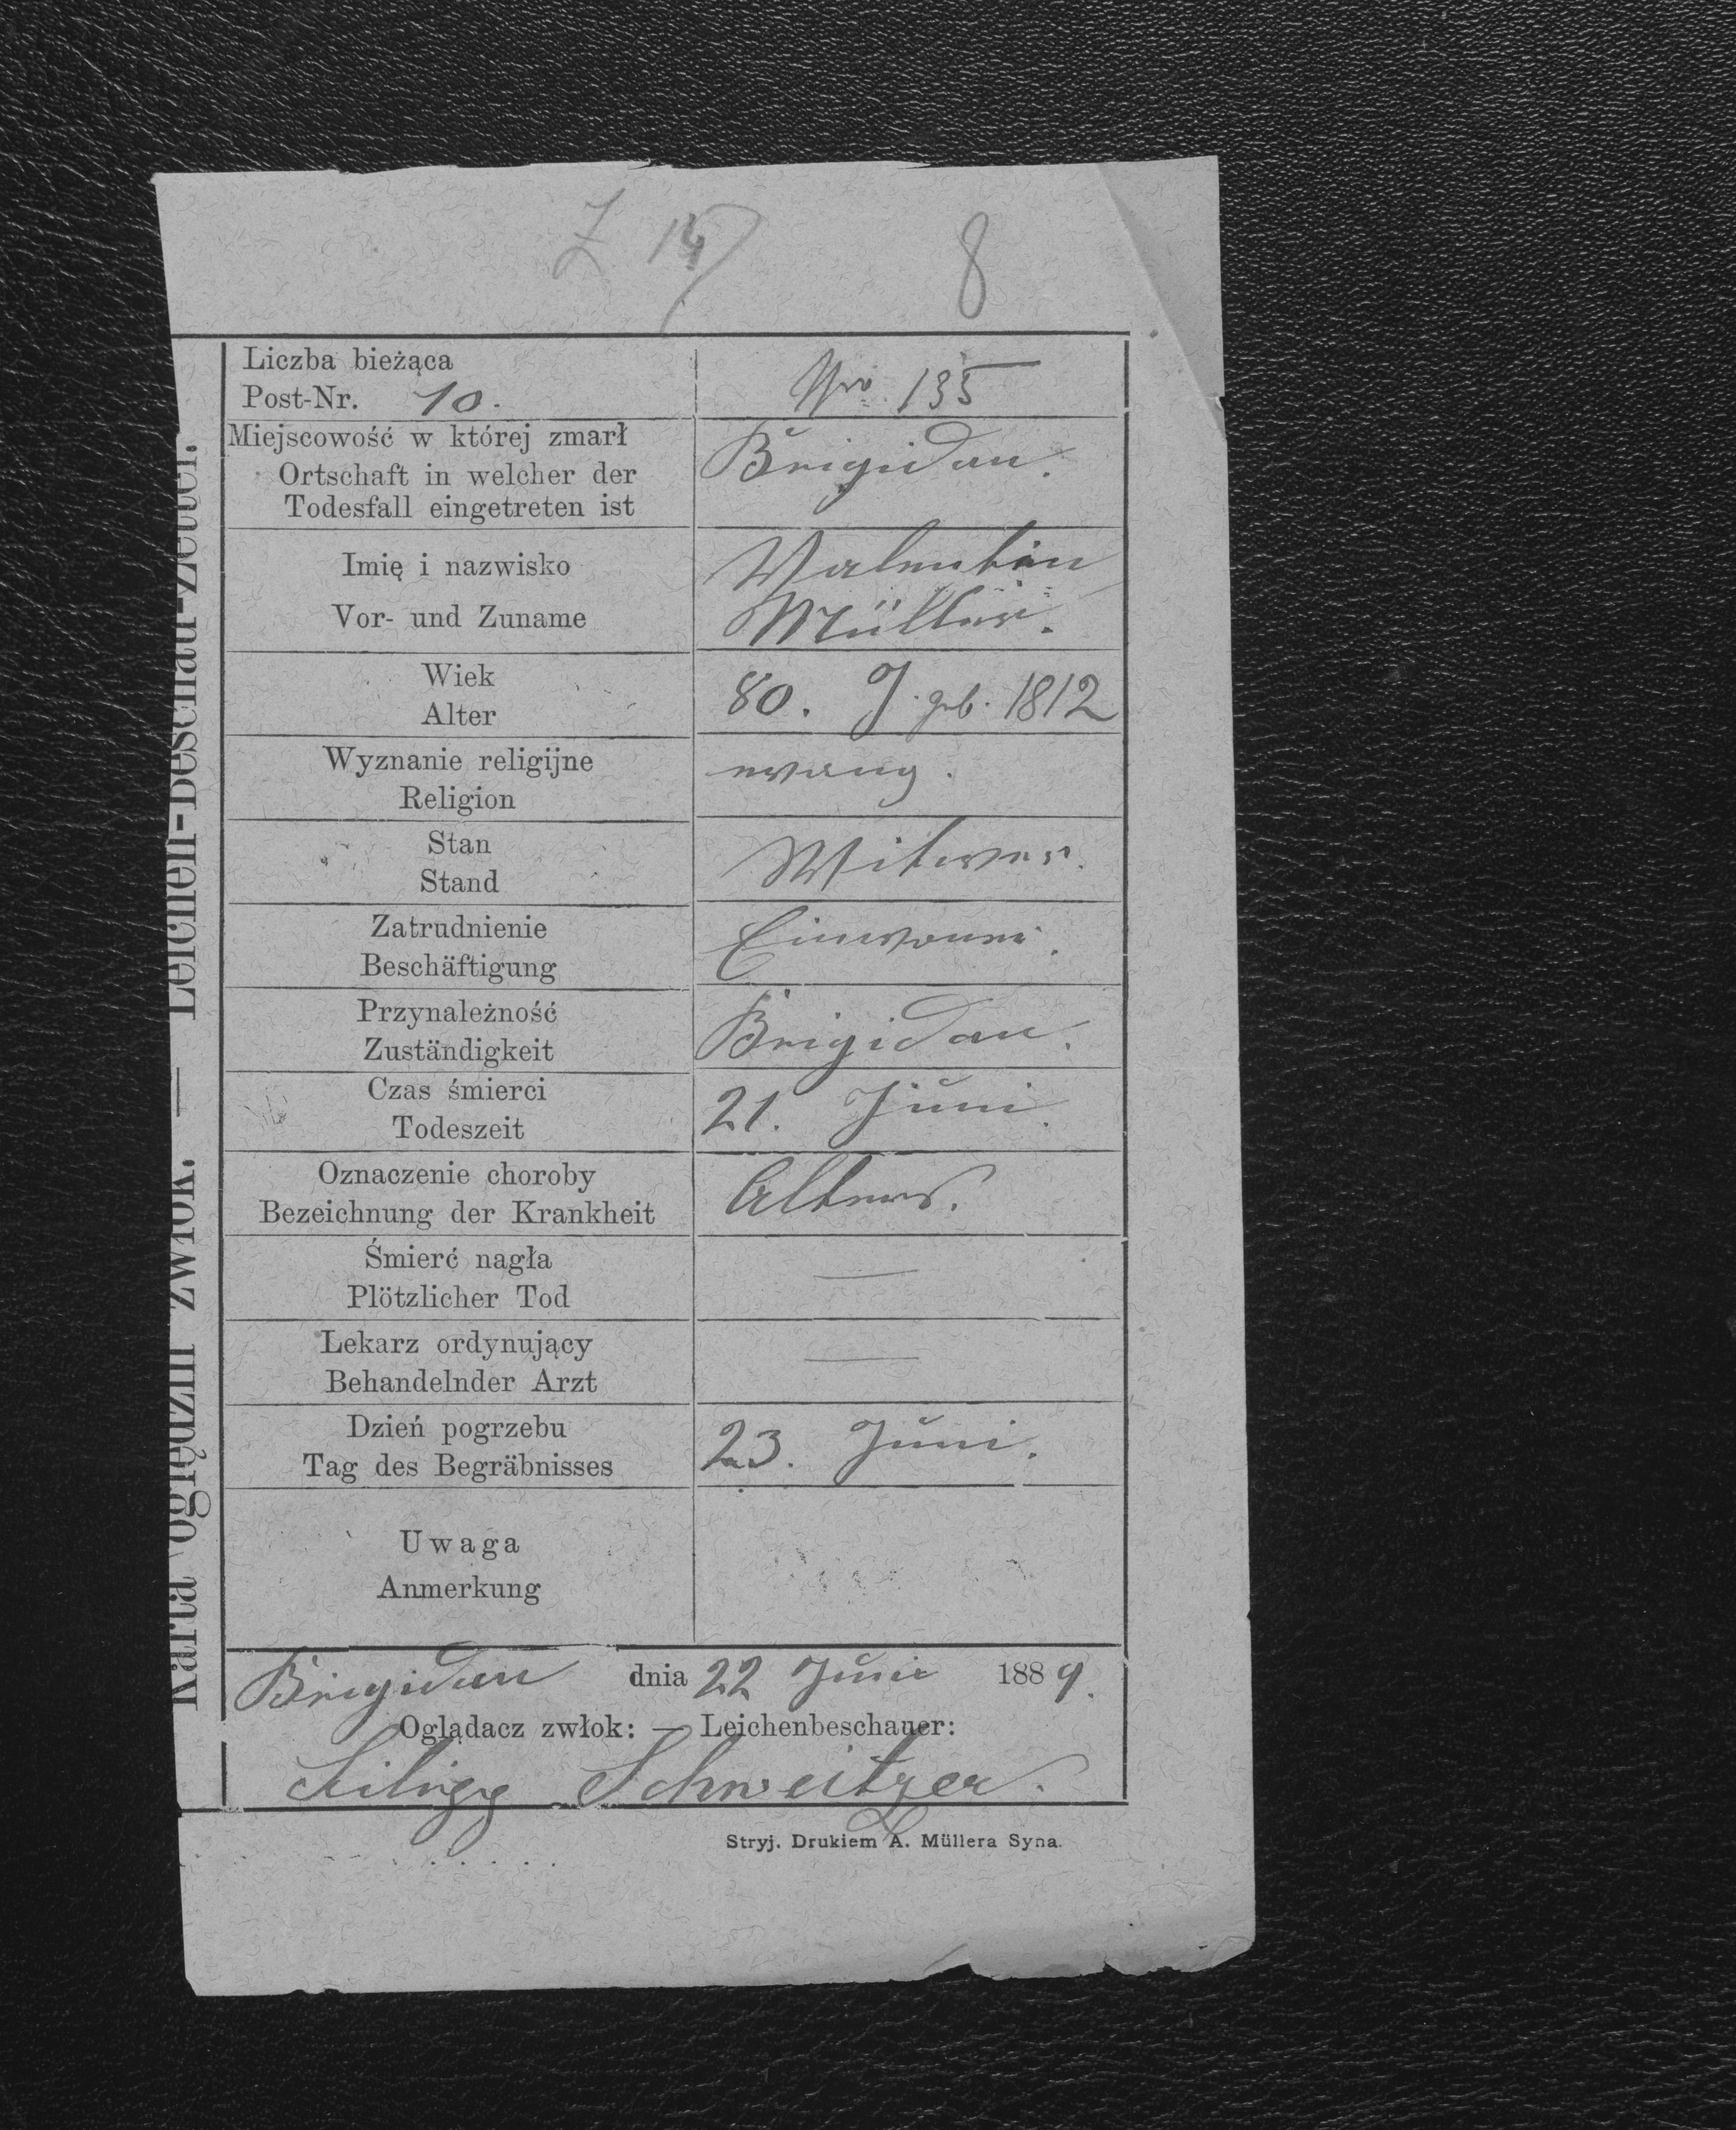 Z 14
8
Karta oględzin zwłok. — Leichen-Beschau-Zettel.
Liczba bieżąca
Post-Nr. 10. Nro. 135
Miejscowość w której zmarł
Ortschaft in welcher der
Todesfall eingetreten ist
Brigidau.
Imię i nazwisko
Vor- und Zuname
Valentin
Müller.
Wiek
Alter
80. J. geb. 1812
Wyznanie religijne
Religion
evang.
Stan
Stand
Witwer.
Zatrudnienie
Beschäftigung
Przynależność
Zuständigkeit
Brigidau.
Czas śmierci
Todeszeit
21. Juni.
Oznaczenie choroby
Bezeichnung der Krankheit
Alters.
Śmierć nagła
Plötzlicher Tod
—
Lekarz ordynujący
Behandelnder Arzt
—
Dzień pogrzebu
Tag des Begräbnisses
23. Juni.
Uwaga
Anmerkung
Brigidau dnia 22 Juni 1889.
Oglądacz zwłok: — Leichenbeschauer:
Schweitzer.
Stryj. Drukiem A. Müllera Syna.